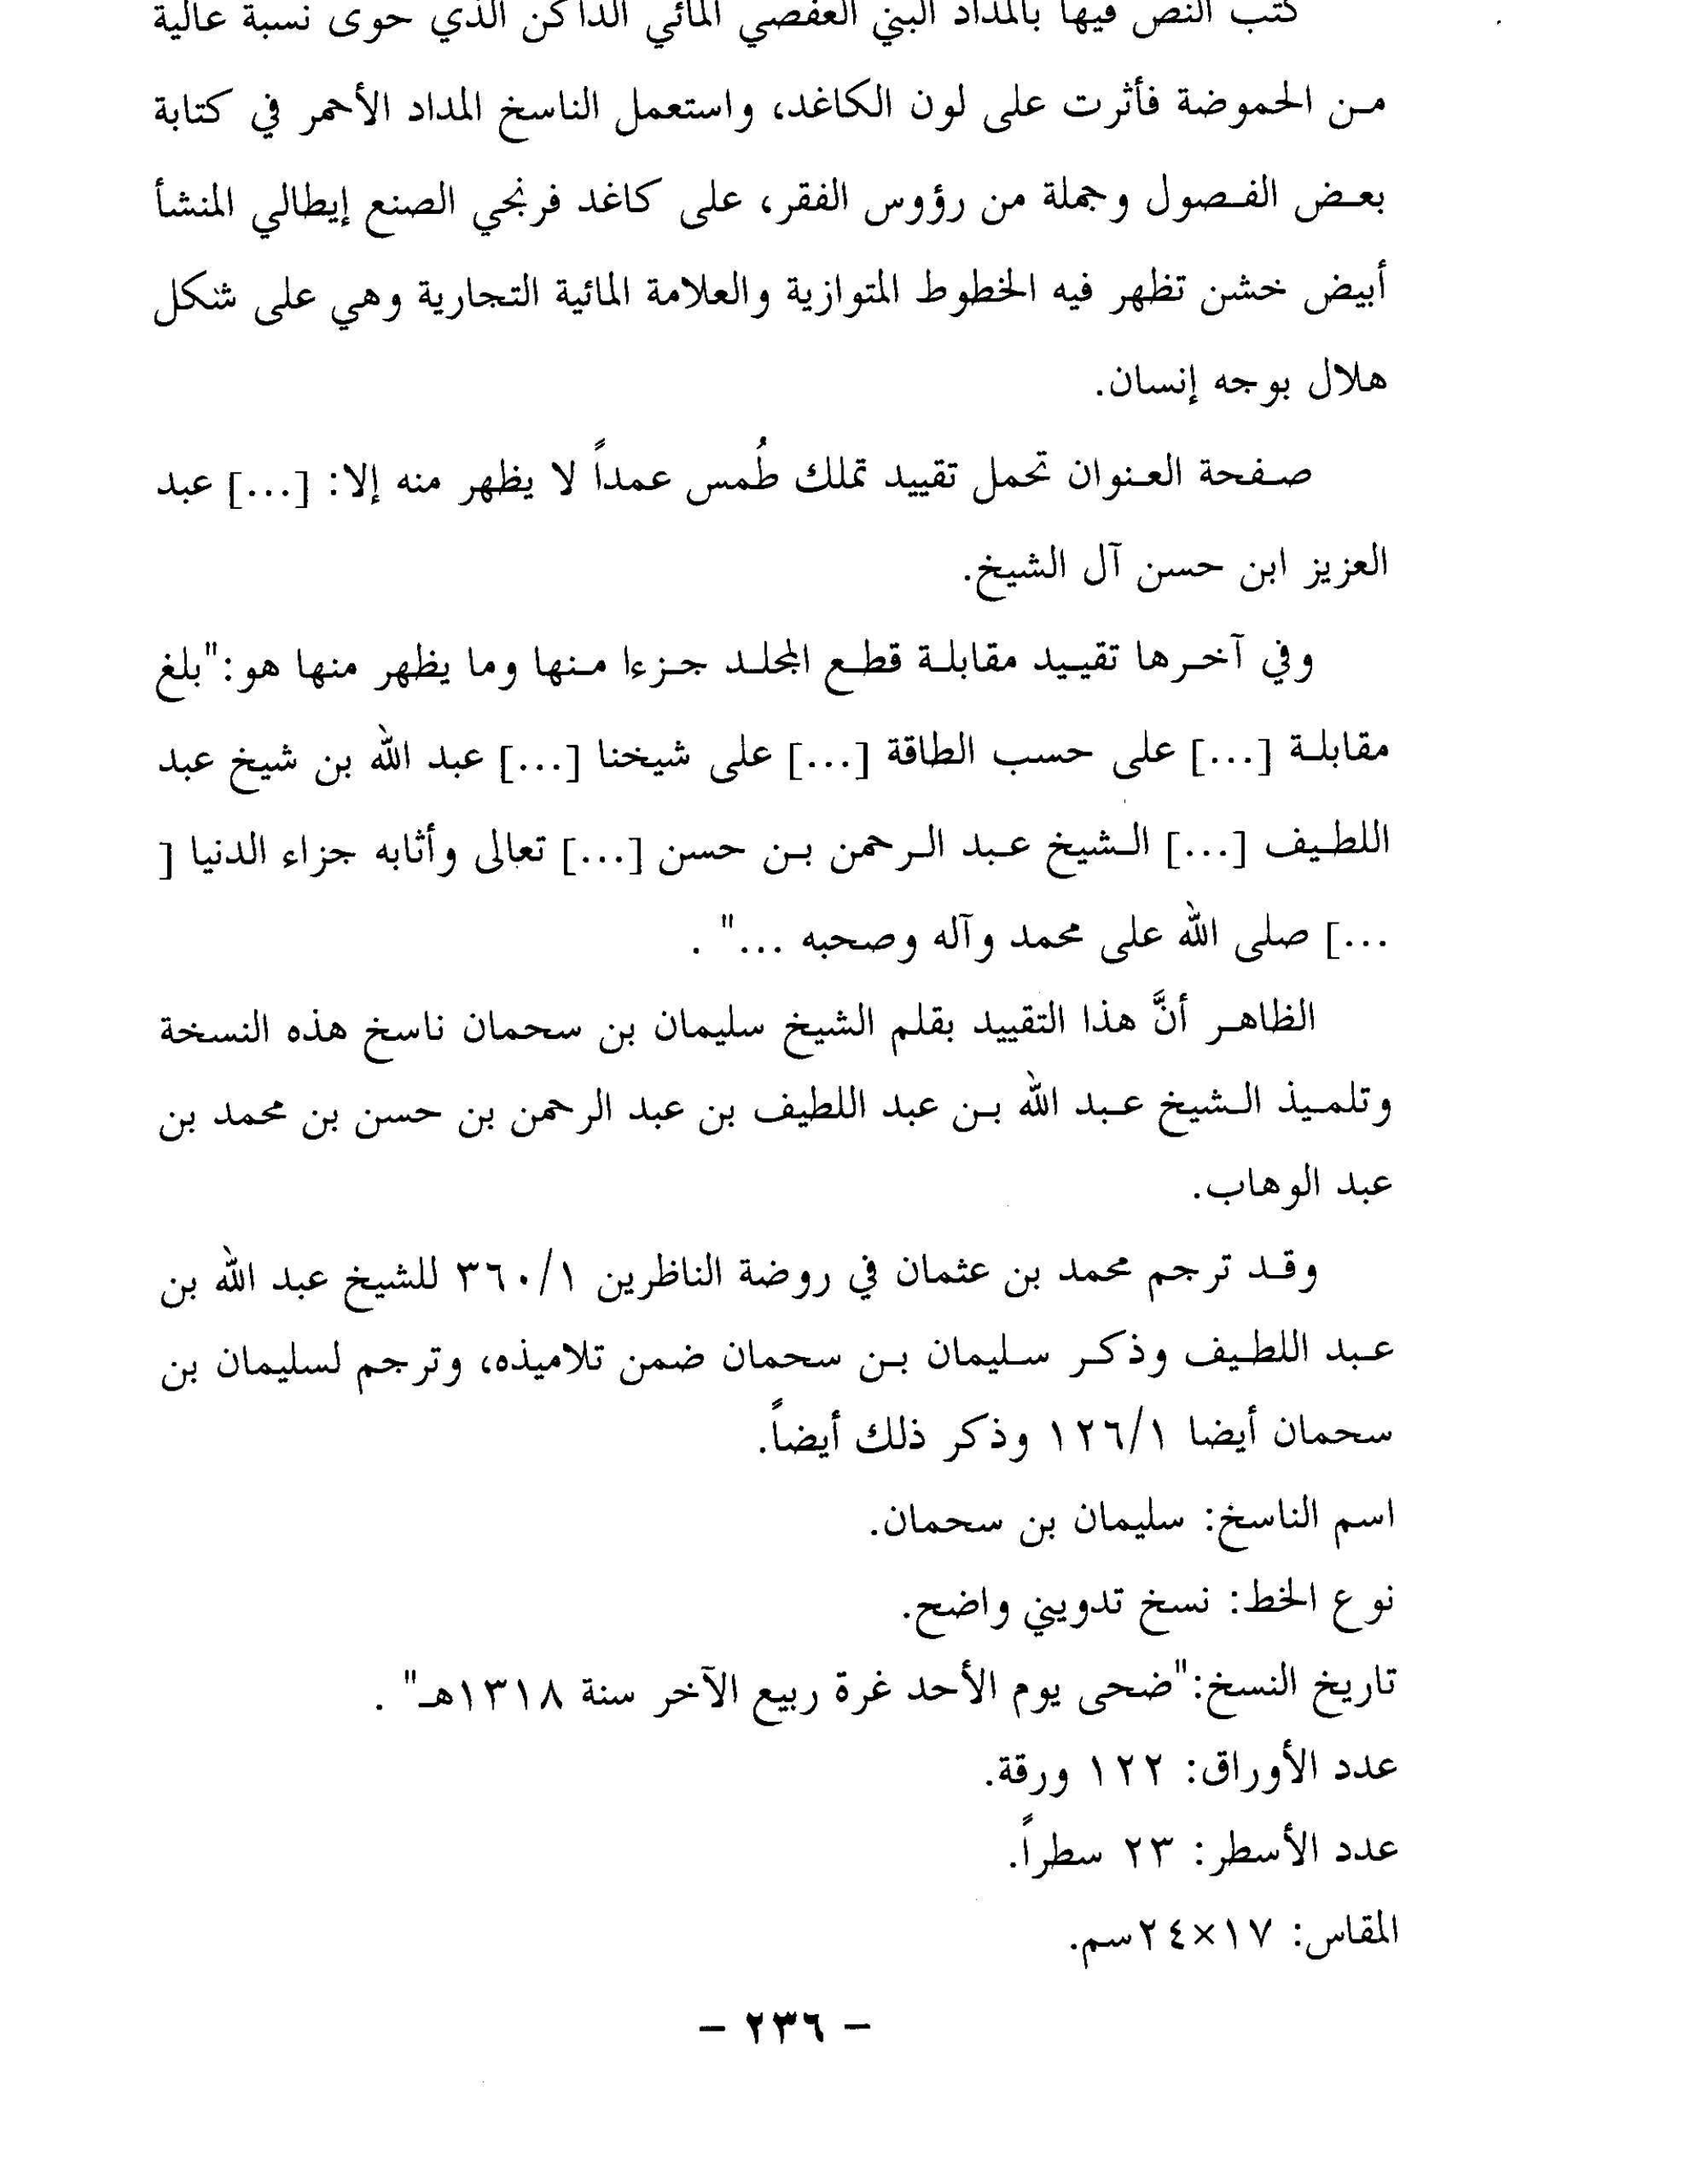 كتب النص فيها بالمداد البني العفصي المائي الداكن الذي حوى نسبة عالية
من الحموضة فأثرت على لون الكاغد، واستعمل الناسخ المداد الأحمر في كتابة
بعض الفصول وجملة من رؤوس الفقر، على كاغد فرنجي الصنع إيطالي المنشأ
أبيض خشن تظهر فيه الخطوط المتوازية والعلامة المائية التجارية وهي على شكل
هلال بوجه إنسان.
صفحة العنوان تحمل تقييد تملك طُمس عمداً لا يظهر منه إلا: [...] عبد
العزيز ابن حسن آل الشيخ.
وفي آخرها تقييد مقابلة قطع المجلد جزءا منها وما يظهر منها هو:"بلغ
مقابلة [...] على حسب الطاقة [...] على شيخنا [...] عبد الله بن شيخ عبد
اللطيف [...] الشيخ عبد الرحمن بن حسن [...] تعالى وأثابه جزاء الدنيا [
...] صلى الله على محمد وآله وصحبه ..." .
الظاهر أنَّ هذا التقييد بقلم الشيخ سليمان بن سحمان ناسخ هذه النسخة
وتلميذ الشيخ عبد الله بن عبد اللطيف بن عبد الرحمن بن حسن بن محمد بن
عبد الوهاب.
وقد ترجم محمد بن عثمان في روضة الناظرين ٣٦٠/١ للشيخ عبد الله بن
عبد اللطيف وذكر سليمان بن سحمان ضمن تلاميذه، وترجم لسليمان بن
سحمان أيضا ١٢٦/١ وذكر ذلك أيضاً.
اسم الناسخ: سليمان بن سحمان.
نوع الخط: نسخ تدويني واضح.
تاريخ النسخ:"ضحى يوم الأحد غرة ربيع الآخر سنة ١٣١٨هـ" .
عدد الأوراق: ١٢٢ ورقة.
عدد الأسطر: ٢٣ سطراً.
المقاس: ١٧×٢٤سم.
- ٢٣٦ -